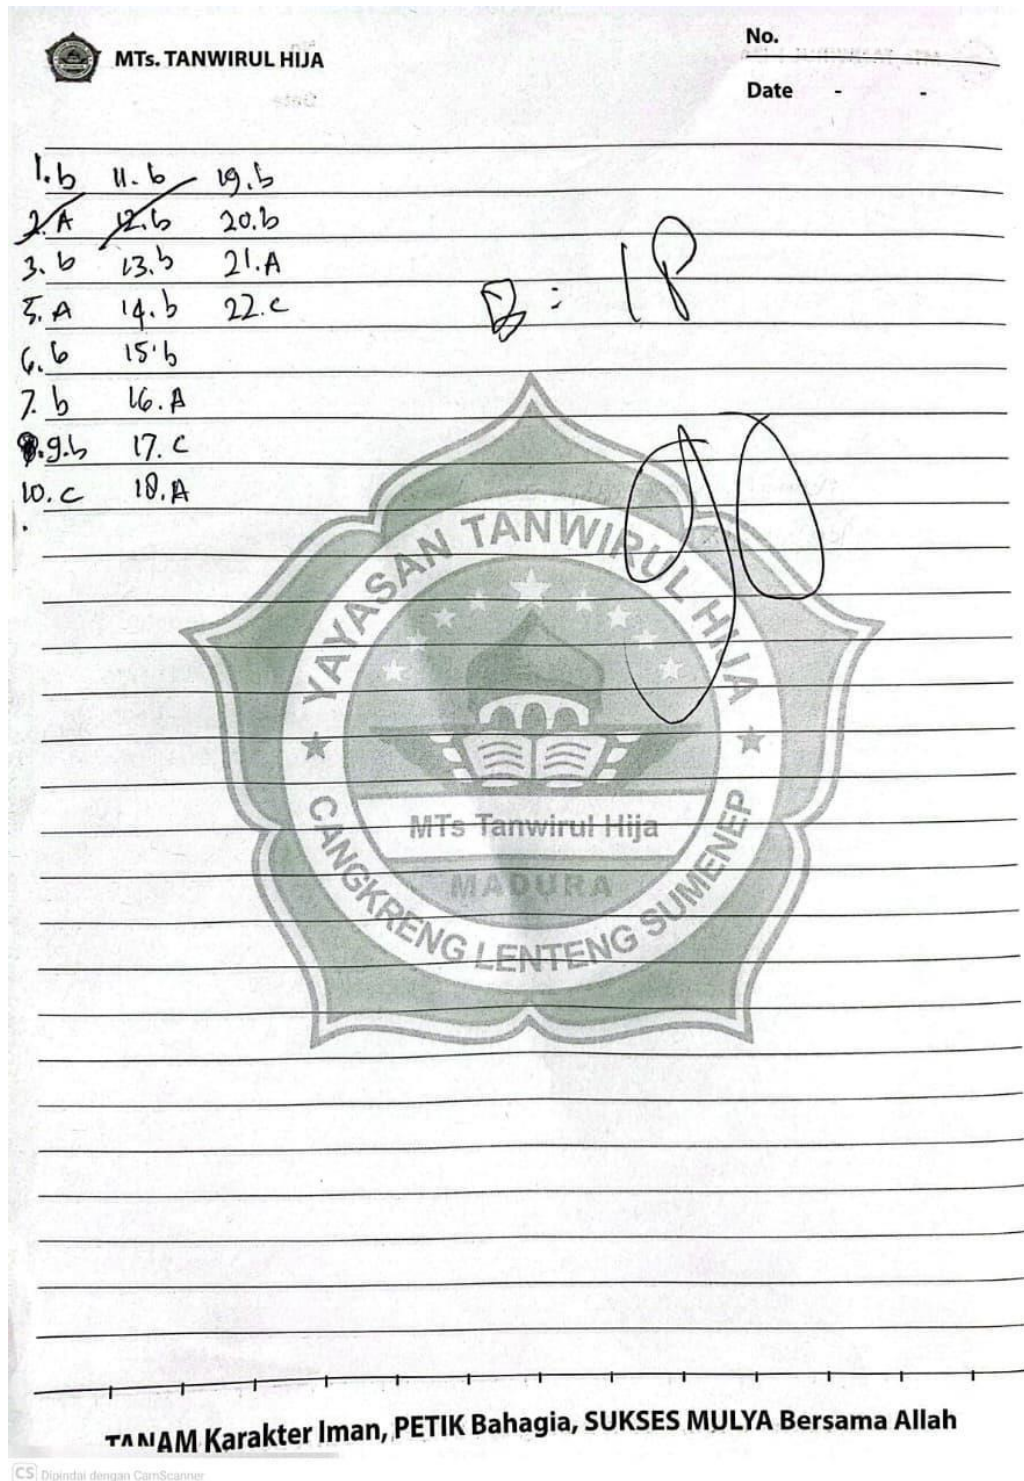 MTs. TANWIRUL HIJA
No.
Date - -
1. b 11. b 19. b
2. A 12. b 20. b
3. b 13. b 21. A
5. A 14. b 22. c
6. b 15. b
7. b 16. A
9. b 17. c
10. c 18. A
B = 18
90
YAYASAN TANWIRUL HIJA
MTs Tanwirul Hija
MADURA
CANGKRENG LENTENG SUMENEP
TANAM Karakter Iman, PETIK Bahagia, SUKSES MULYA Bersama Allah
CS Dipindai dengan CamScanner